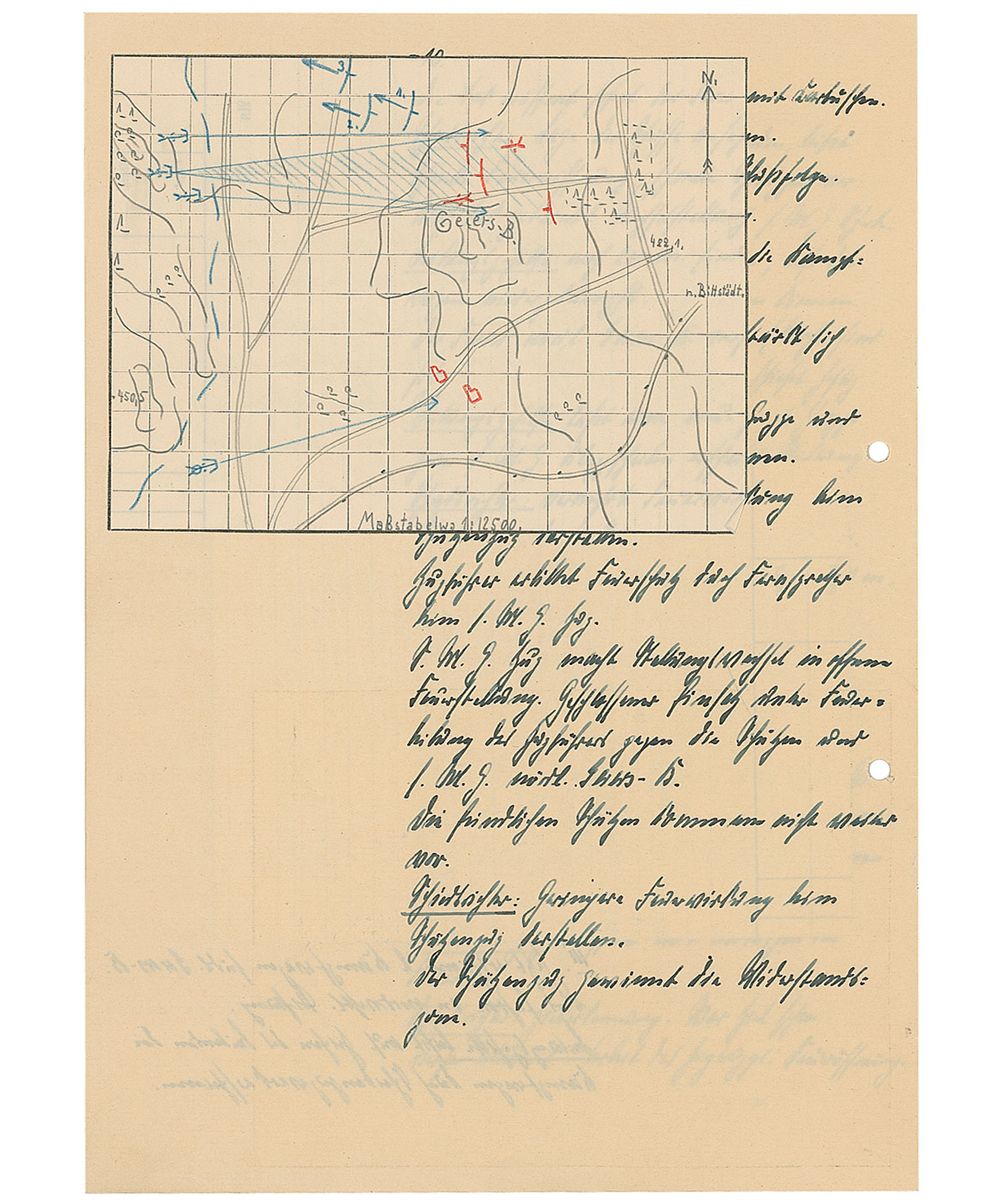 10
3.
2.
1.
N.
Geiers-B.
422,1.
n. Bittstädt.
450,5
Maßstab etwa 1:12500.
mit Kartuschen.
die Kampf=
sich
und
beim
darstellen.
Zugführer erbittet Feuerschutz durch Fernsprecher
beim s. M. G. Zug.
S. M. G. Zug macht Stellungswechsel in offene
Feuerstellung. Geschlossener Einsatz unter Feuer=
leitung des Zugführers gegen die Schützen und
s. M. G. nördl. Geiers-B.
Die feindlichen Schützen kommen nicht weiter
vor.
Schiedsrichter: Geringere Feuerwirkung beim
Schützenzug darstellen.
Der Schützenzug gewinnt die Widerstands=
zone.